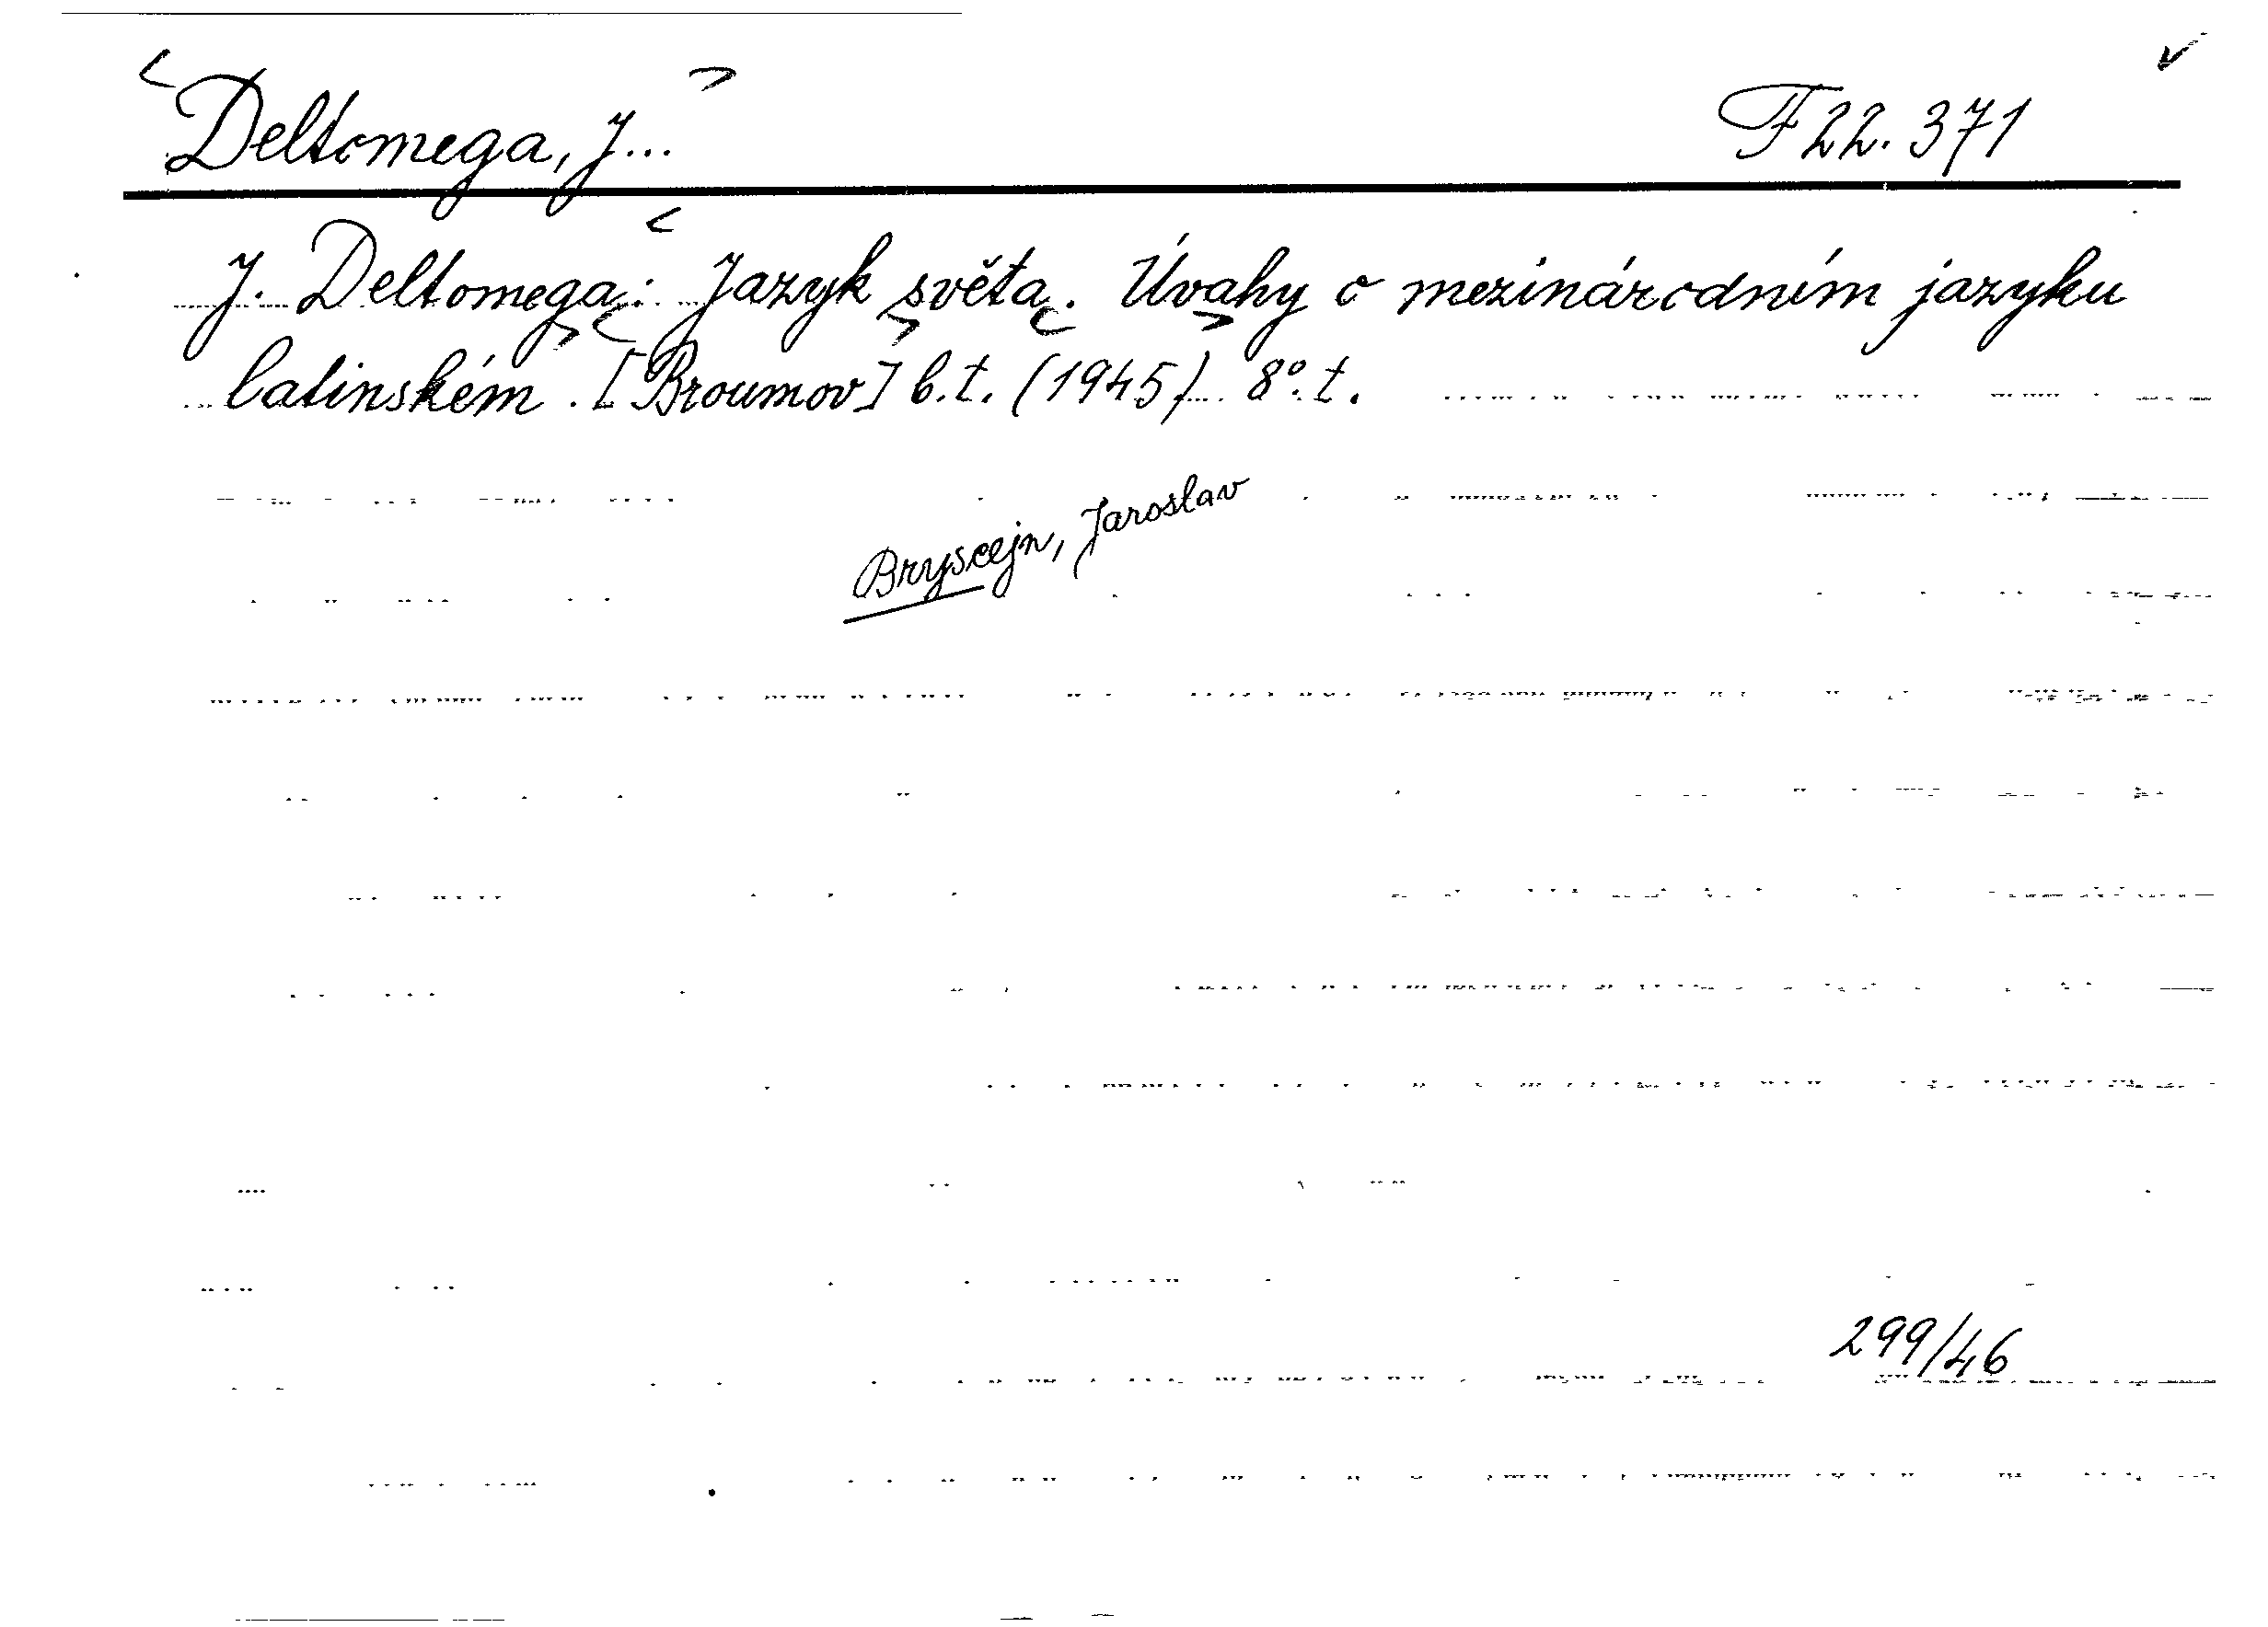 Deltomega, J... F 22.371
J. Deltomega: Jazyk světa. Úvahy o mezinárodním jazyku
latinském. [Broumov] b.t. (1945). 8°. t.
Bryscejn, Jaroslav
299/46